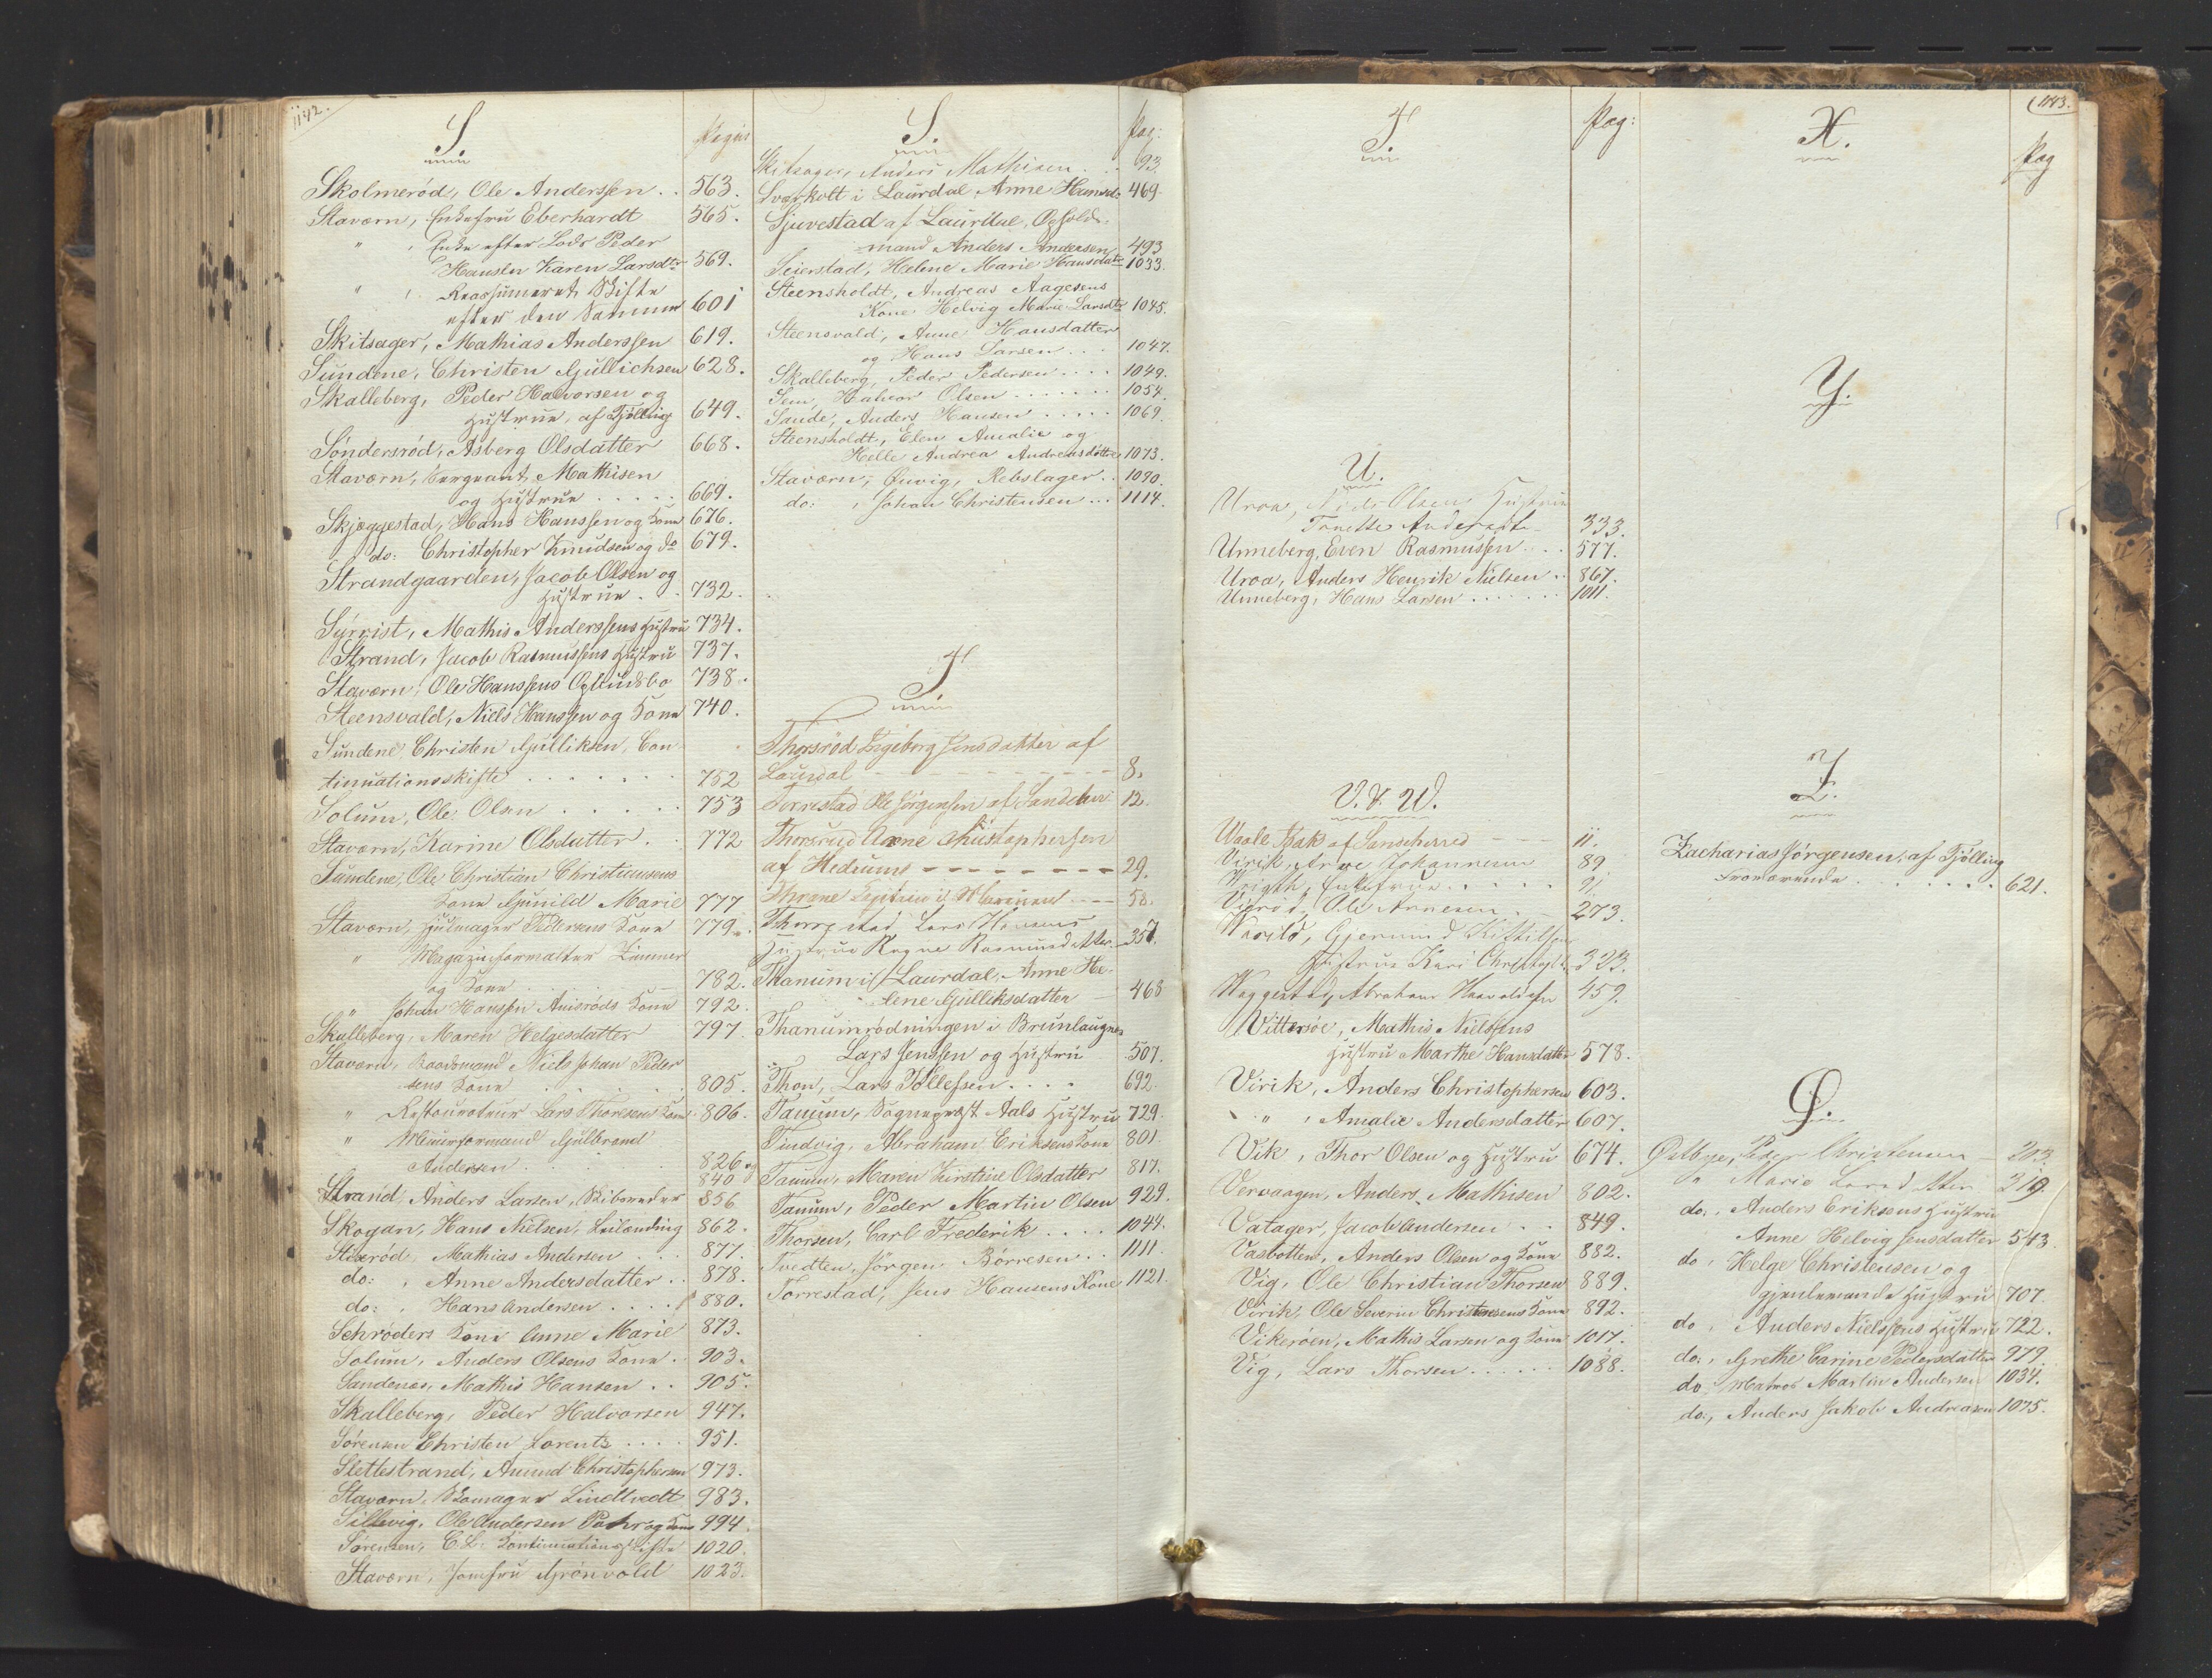 1142.
S.
Pagina
Skolmerød, Ole Anderssen . . 563.
Staværn, Enkefru Eberhardt 565.
" , Enke efter Lods Peder
Hanssen Karen Larsdtr 569.
" , Reassumeret Skifte
efter den Samme 601
Skitsager, Mathias Anderssen 619.
Sundene, Christen Gullichsen 628.
Skalleberg, Peder Halvorsen og
Hustrue, af Tjølling 649.
Søndersrød, Asberg Olsdatter 668.
Staværn, Sergeant Mathisen
og Hustrue . . . . . 669.
Skjæggestad, Hans Hanssen og Kone 676.
do: Christopher Knudsen og do 679.
Strandgaarden, Jacob Olsen og
Hustrue . . 732.
Syrrist, Mathis Anderssens Hustru 734.
Strand, Jacob Rasmussens Hustru 737.
Staværn, Ole Hanssens Opbudsbo 738.
Steensvald, Niels Hanssen og Kone 740.
Sundene, Christen Gulliksen, Con-
tinuationsskifte . . . . . . . 752
Solum, Ole Olsen . . . . . 753
Staværn, Karine Olsdatter . . 772
Sundene, Ole Christian Christiansens
Kone Gunild Marie 777
Staværn, Hjulmager Pedersens Kone 779.
" Magazinforvalter Zimmer
og Kone . . . . . 782.
" Johan Hanssen Auerøds Kone 792.
Skalleberg, Maren Helgesdatter 797.
Staværn, Baadsmand Niels Johan Peder
sens Kone . . . . . 805.
" Restaurateur Lars Thoresens Kone 806.
" Muurformand Gulbrand
Andersen . . . . 826 og
840
Strand, Anders Larsen, Skibsreder 856
Skogan, Hans Nielsen, Leilænding 862.
Stixrød, Mathias Andersen . . . 877.
do: , Anne Andersdatter . . 878.
do: , Hans Andersen . . . . 880.
Schrøders Kone Anne Marie 873.
Solum, Anders Olsens Kone . . 903.
Sandenæs, Mathis Hansen . . 905.
Skalleberg, Peder Halvorsen 947.
Sørensen Christen Lorentz . . . . 951.
Slettestrand, Amund Christophersen 973.
Staværn, Skomager Lindtvedt 983.
Sillevig, Ole Andersen og Kone 994.
Sørensen, C. L. Kontinuationsskifte 1020.
Staværn, Jomfru Grønvold 1023.
S.
Pag:
Skitsager, Anders Mathisen . . 93.
Sværkolt i Laurdal, Anne Hansdr 469.
Sjuvestad af Laurdal, Opholds-
mand Anders Andersen 493
Seierstad, Helene Marie Hansdatr 1033.
Steensholdt, Andreas Aagesens
Kone Helvig Marie Larsdtr 1045.
Steensvald, Anne Hansdatter
og Hans Larsen . . . 1047.
Skalleberg, Peder Pedersen . . . . 1049.
Sem, Halvor Olsen . . . . . . . 1054.
Sande, Anders Hansen . . . . . 1069.
Steensholdt, Elen Amalie og
Helle Andrea Andreasdøttre 1073.
Staværn, Rebslager . . 1090.
do: , Johan Christensen . . . 1114.
T
Thorsrød Ingeborg Jensdatter af
Laurdal 8.
Torrestad Ole Jørgensen af Sandeherr 12.
Thorsrud Anne Christophersen
af Hedrums 29.
Thrane 58.
Thorsgstad Lars Hansens
Hustrue Ragne Rasmusdatter 357.
Thanum i Laurdal, Anne He-
lene Gulliksdatter 468
Thanumrødningen i Brunlaugnes
Lars Jenssen og Hustru 507.
Thon, Lars Tollefssen . . . . 692.
Tanum, Sognepræst Aals Hustru 729.
Tindvig, Abraham Eriksens Kone 801
Tanum, Maren Kirstine Olsdatter 817.
Tanum, Peder Martin Olsen 929.
Thorsen, Carl Frederik . . . . 1044.
Tvedten, Jørgen Børresen . . 1111.
Torrestad, Jens Hansens Kone 1121.
T
Pag:
U.
Uroa, Nils Olsen Hustrue
Tonette Andersdtr 333.
Unneberg, Even Rasmussen . . . 577.
Uroa, Anders Henrik Nielsen . . 867.
Unneberg, Hans Larsen . . . . . . . 1011.
V. & W.
Waale Isak af Sandeherred 11.
Virik, Arne Johannesen 89
Wrigth, Enkefrue . . . . . 91
Vigrød, Ole Arnesen . . 273.
Warild, Gjermund Kittilsen
Hustrue Kari Christophd. 323.
Weggestad, Abraham Haavoldsen 459.
Vittersøe, Mathis Nielssens
Hustru Marthe Hansdatter 578.
Virik, Anders Christophersen 603.
" , Amalie Andersdatter 607.
Vik, Thor Olsen og Hustru 674.
Vervaagen, Anders Mathisen 802.
Vatager, Jacob Andersen . . 849.
Vasbotten, Anders Olsen og Kone 882.
Vig, Ole Christian Thorsen 889.
Virik, Ole Severin Christensens Kone 892.
Vikerøen, Mathis Larsen og Kone 1017.
Vig, Lars Thorsen . . . . . 1088.
1143.
X.
Pag
Y.
Z.
Zacharias Jørgensen, af Tjølling
fraværende . . . . . . . 621.
Ø.
Østbye, Peder Christensen 303.
" Marie Larsdatter 319.
do: , Anders Eriksens Hustrue
Anne Helvig Jensdatter 543.
do , Helge Christensen og
gjenlevende Hustru 707.
do , Anders Nielssens Hustrue 722.
do: , Grethe Carine Pedersdatter 979.
do , Matros Martin Andersen 1034.
do: , Anders Jakob Andreasen 1075.